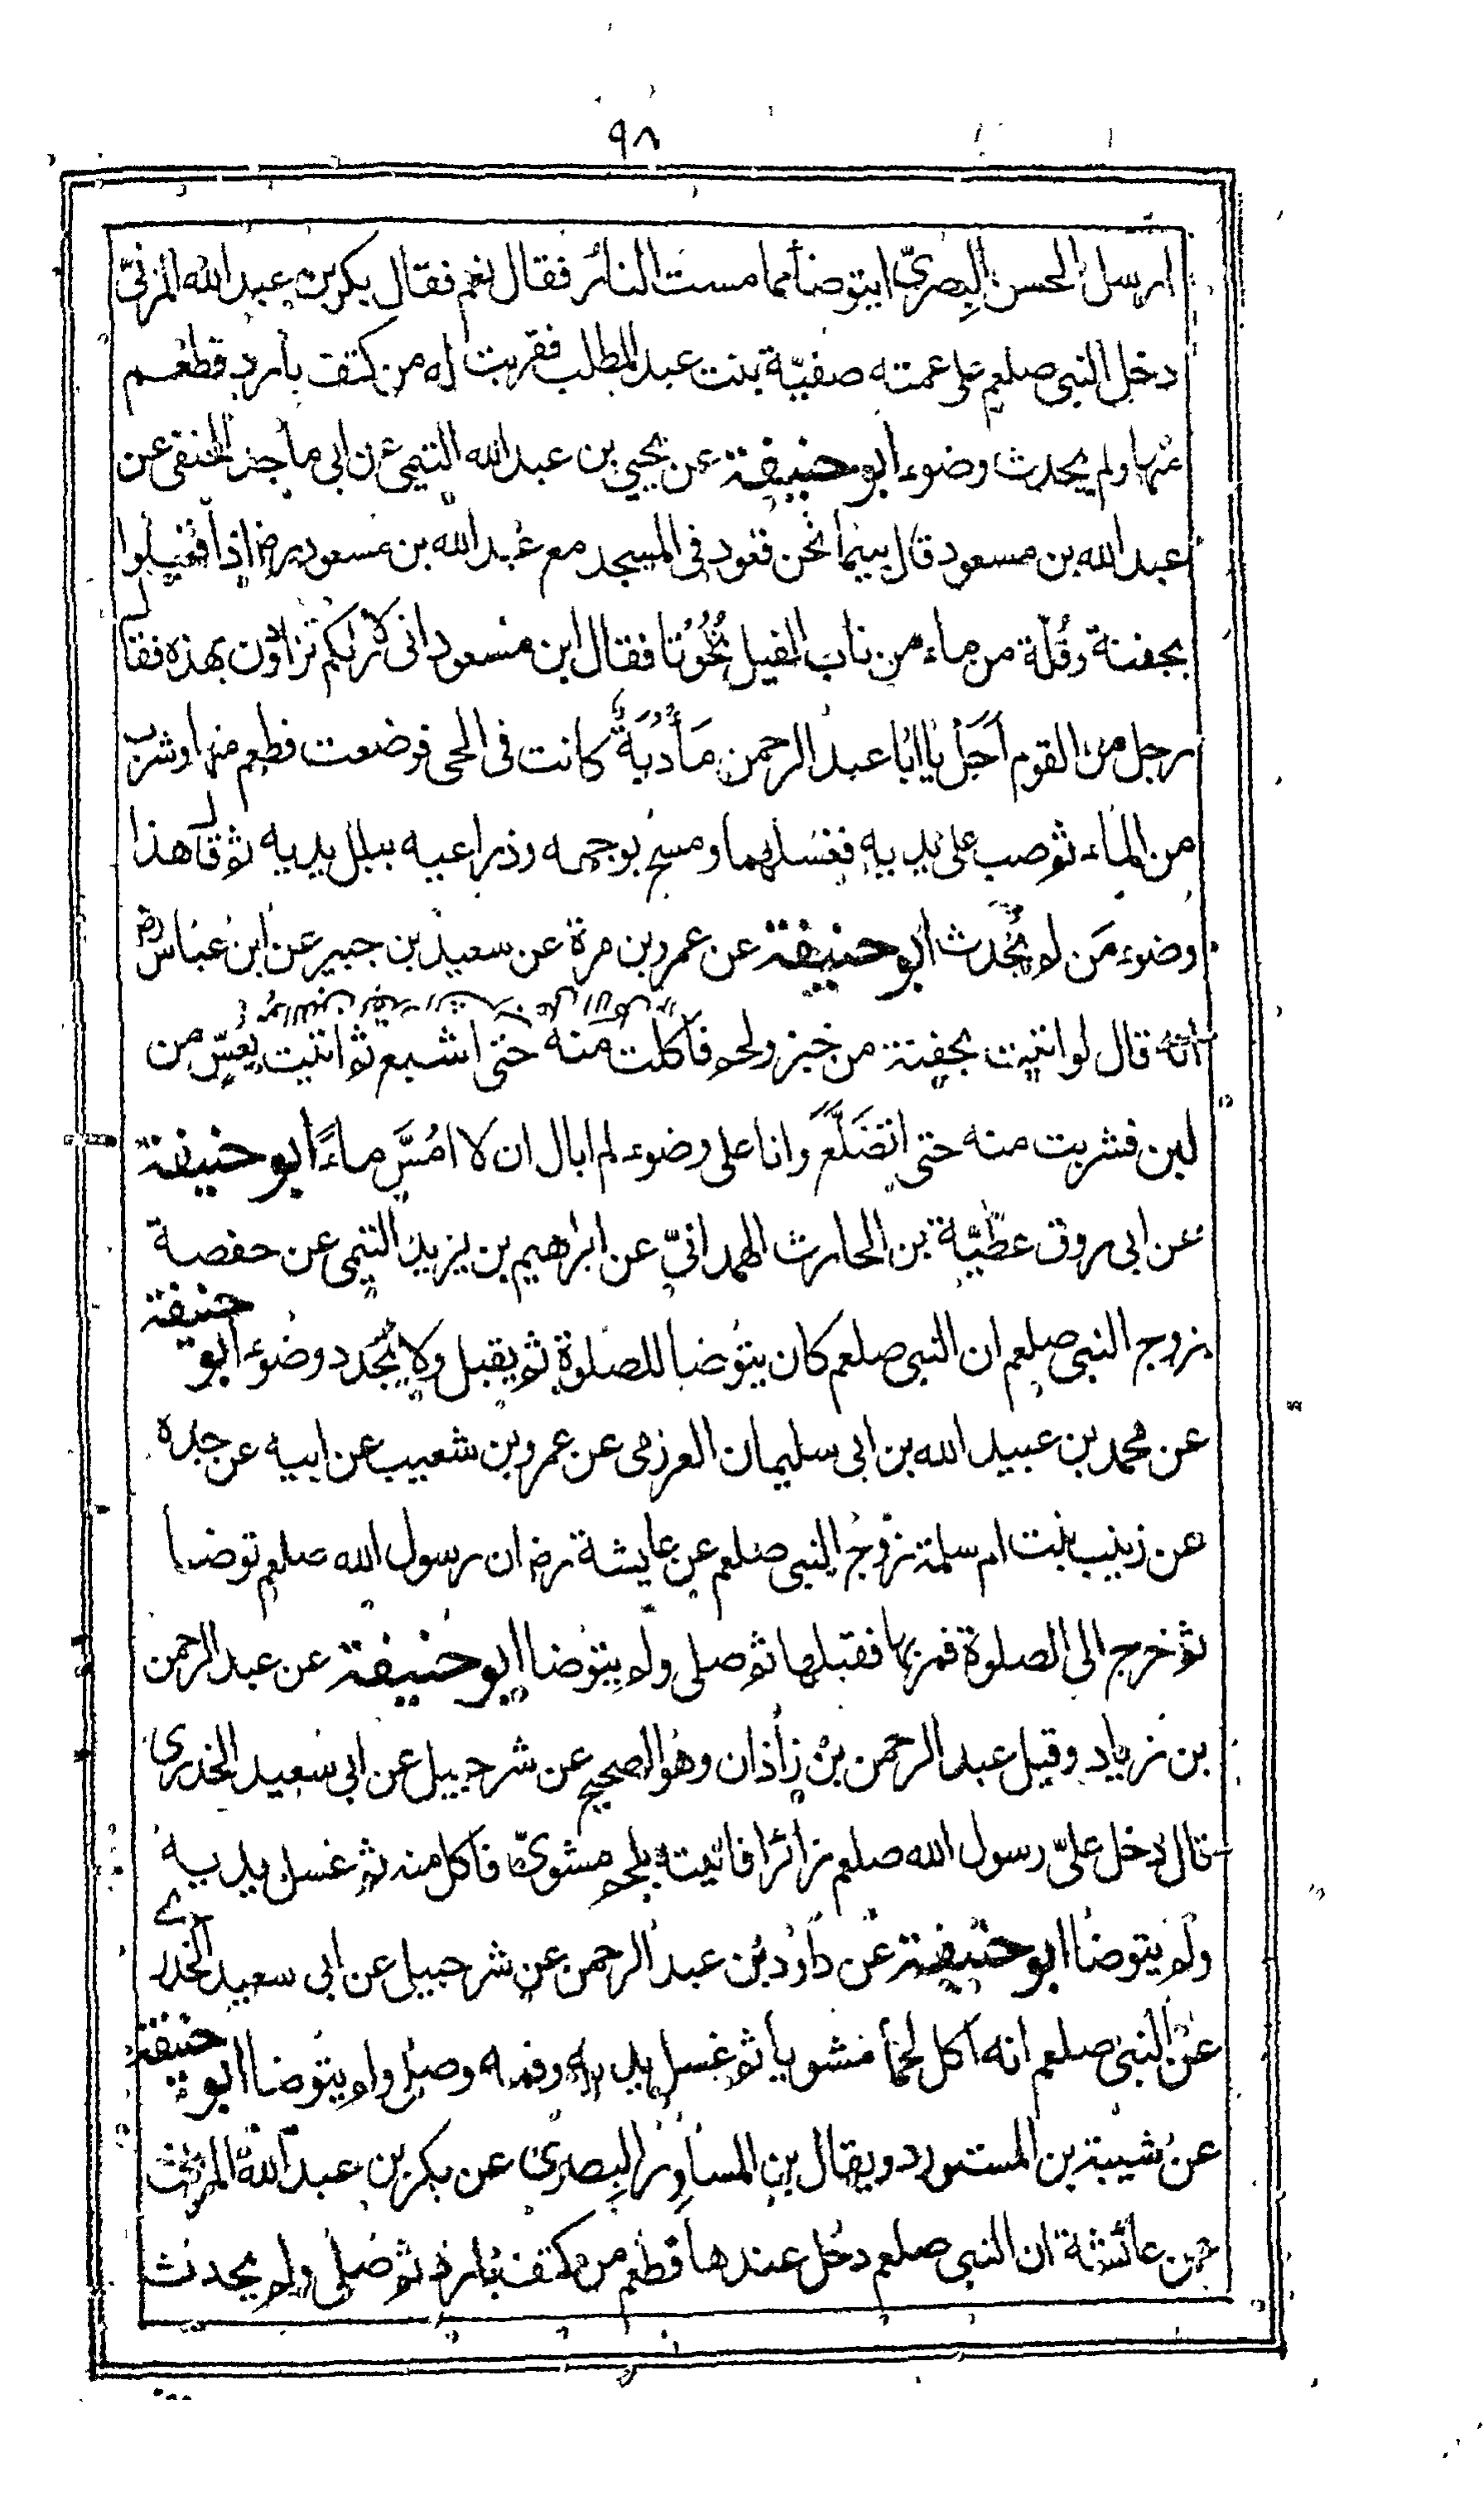 ٩٨
ارسل الحسن البصريّ ايتوضأ مما مست النار فقال نعم فقال بكر بن عبد الله المزنيّ
دخل النبي صلعم على عمته صفيّة بنت عبد المطلب فقربت له من كتف بارد فطعم
منها ولم يحدث وضوء ابو حنيفة عن يحيى بن عبد الله التيمي عن ابى ماجد الحنفي عن
عبد الله بن مسعود قال بينما نحن قعود في المسجد مع عبد الله بن مسعود رض اذا
بجفنة وقُلّة من ماء من باب الفيل نحونا فقال ابن مسعود انى لاراكم تزادون بهذه فقال
رجل من القوم اَجَل يا ابا عبد الرحمن مَأْدُبَةٌ كانت في الحي فوضعت فطعم منها وشرب
من الماء ثم صب على يديه فغسلهما ومسح بوجهه وذراعيه ببلل يديه ثم قال هذا
وضوء مَن لم يُحدث ابو حنيفة عن عمرو بن مرة عن سعيد بن جبير عن ابن عباس رض
انه قال لو اتيت بجفنة من خبز ولحم فاكلت منه حتى اشبع ثم اتيت بعُسّ من
لبن فشربت منه حتى اتضَلَّعَ وانا على وضوء لم ابال ان لا امُسَّ ماءً ابو حنيفة
عن ابى روق عطيّة بن الحارث الهمدانيّ عن ابراهيم بن يزيد التيمي عن حفصة
زوج النبي صلعم ان النبي صلعم كان يتوضا للصلوة ثم يقبل ولا يُجَدد وضوء ابو حنيفة
عن محمد بن عبيد الله بن ابى سليمان العرزمى عن عمرو بن شعيب عن ابيه عن جده
عن زينب بنت ام سلمة زوج النبي صلعم عن عايشة رض ان رسول الله صلعم توضا
ثم خرج الى الصلوة فمر بها فقبلها ثم صلى ولم يتوضا ابو حنيفة عن عبد الرحمن
بن زياد وقيل عبد الرحمن بن زاذان وهو الصحيح عن شرحبيل عن ابى سعيد الخدرى
قال دخل علىّ رسول الله صلعم زائرا فاتيته بلحم مشوىّ فاكل منه ثم غسل يديه
ولم يتوضا ابو حنيفة عن داود بن عبد الرحمن عن شرحبيل عن ابى سعيد الخدرے
عن النبي صلعم انه اكل لحما مشويا ثم غسل يديه وفمه وصلى ولم يتوضا ابو حنيفة
عن شيبة بن المستورد ويقال بن المساور البصرى عن بكر بن عبد الله المزنى
عن عائشة ان النبي صلعم دخل عندها فطعم من كتف بارد ثم صلى ولم يحدث